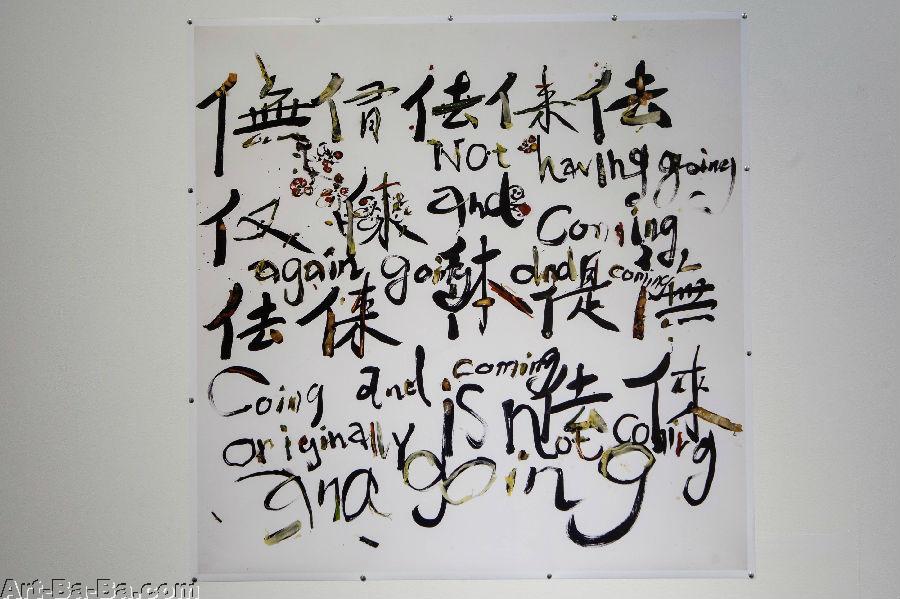 㒇侑佉俫佉
Not having going
仅俫 and Coming
again going and coming
佉俫 偍㒇
Coing and coming
佉俫
originally is not coming
and going
Art-Ba-Ba.com